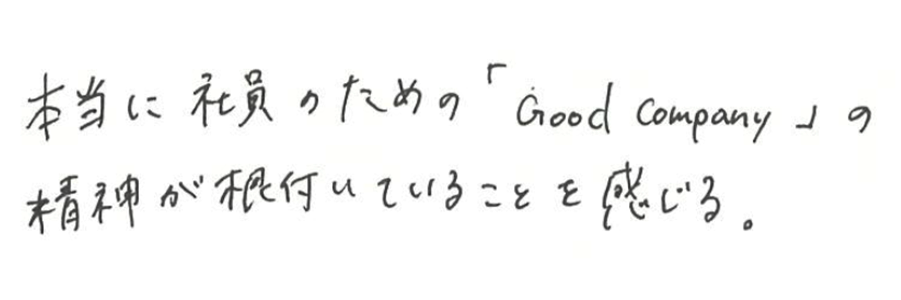 本当に社員のための「Good Company」の
精神が根付いていることを感じる。